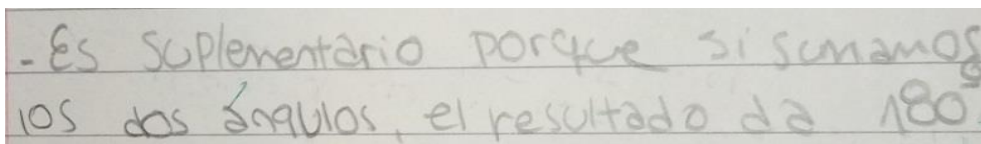 - Es suplementario porque si sumamos
los dos ángulos, el resultado da 180°.